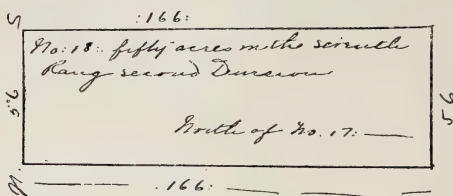 S :166:
No: 18: fifty acres in the seventh
Rang second Division
56
56
North of No. 17:
N .166: